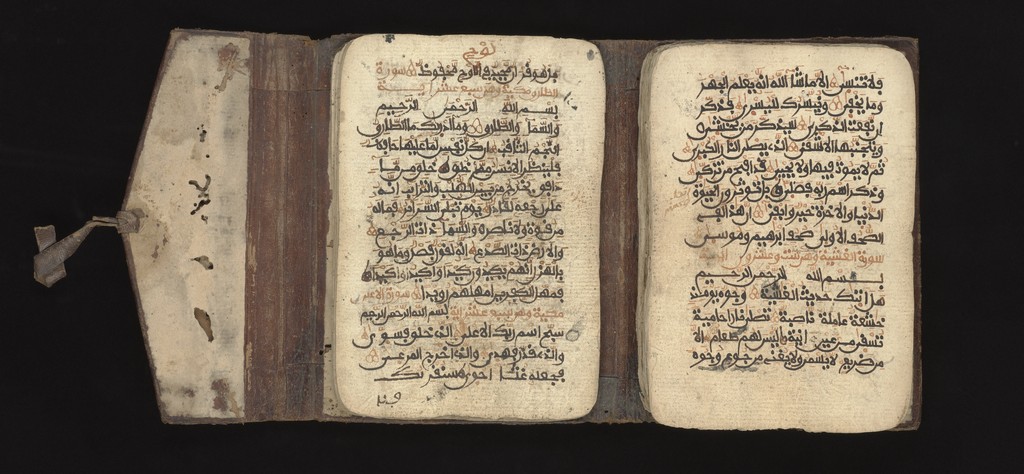 لوح
بل هو قران مجيد في لوح محفوظ سورة
الطارق مكية وهي سبع عشر اية
بسم الله الرحمن الرحيم
والسماء والطارق وما ادريك ما الطارق
النجم الثاقب ان كل نفس لما عليها حافظ
فلينظر الانسن مم خلق خلق من ما
دافق يخرج من بين الصلب والترايب انه
على رجعه لقادر يوم تبلى السراير فما له
من قوة ولا ناصر والسماء ذات الرجع
والارض ذات الصدع انه لقول فصل وما هو
بالهزل انهم يكيدون كيدا واكيد كيدا
فمهل الكفرين امهلهم رويدا سورة الاعلى
مكية وهي تسع عشر اية بسم الله الرحمن الرحيم
سبح اسم ربك الاعلى الذي خلق فسوى
والذي قدر فهدى والذي اخرج المرعى
فجعله غثاء احوى سنقريك
فلا
فلا تنسى الا ما شاء الله انه يعلم الجهر
وما يخفى ونيسرك لليسرى فذكر
ان نفعت الذكرى سيذكر من يخشى و
يتجنبها الاشقى الذي يصلى النار الكبرى
ثم لا يموت فيها ولا يحيى قد افلح من تزكى
وذكر اسم ربه فصلى بل توثرون الحيوة
الدنيا والاخرة خير وابقى ان هذا لفي
الصحف الاولى صحف ابرهيم وموسى
سورة الغشية وهي ست وعشرون اية
بسم الله الرحمن الرحيم
هل اتيك حديث الغشية وجوه يوميذ
خشعة عاملة ناصبة تصلى نارا حامية
تسقى من عين انية ليس لهم طعام الا
من ضريع لا يسمن ولا يغني من جوع وجوه